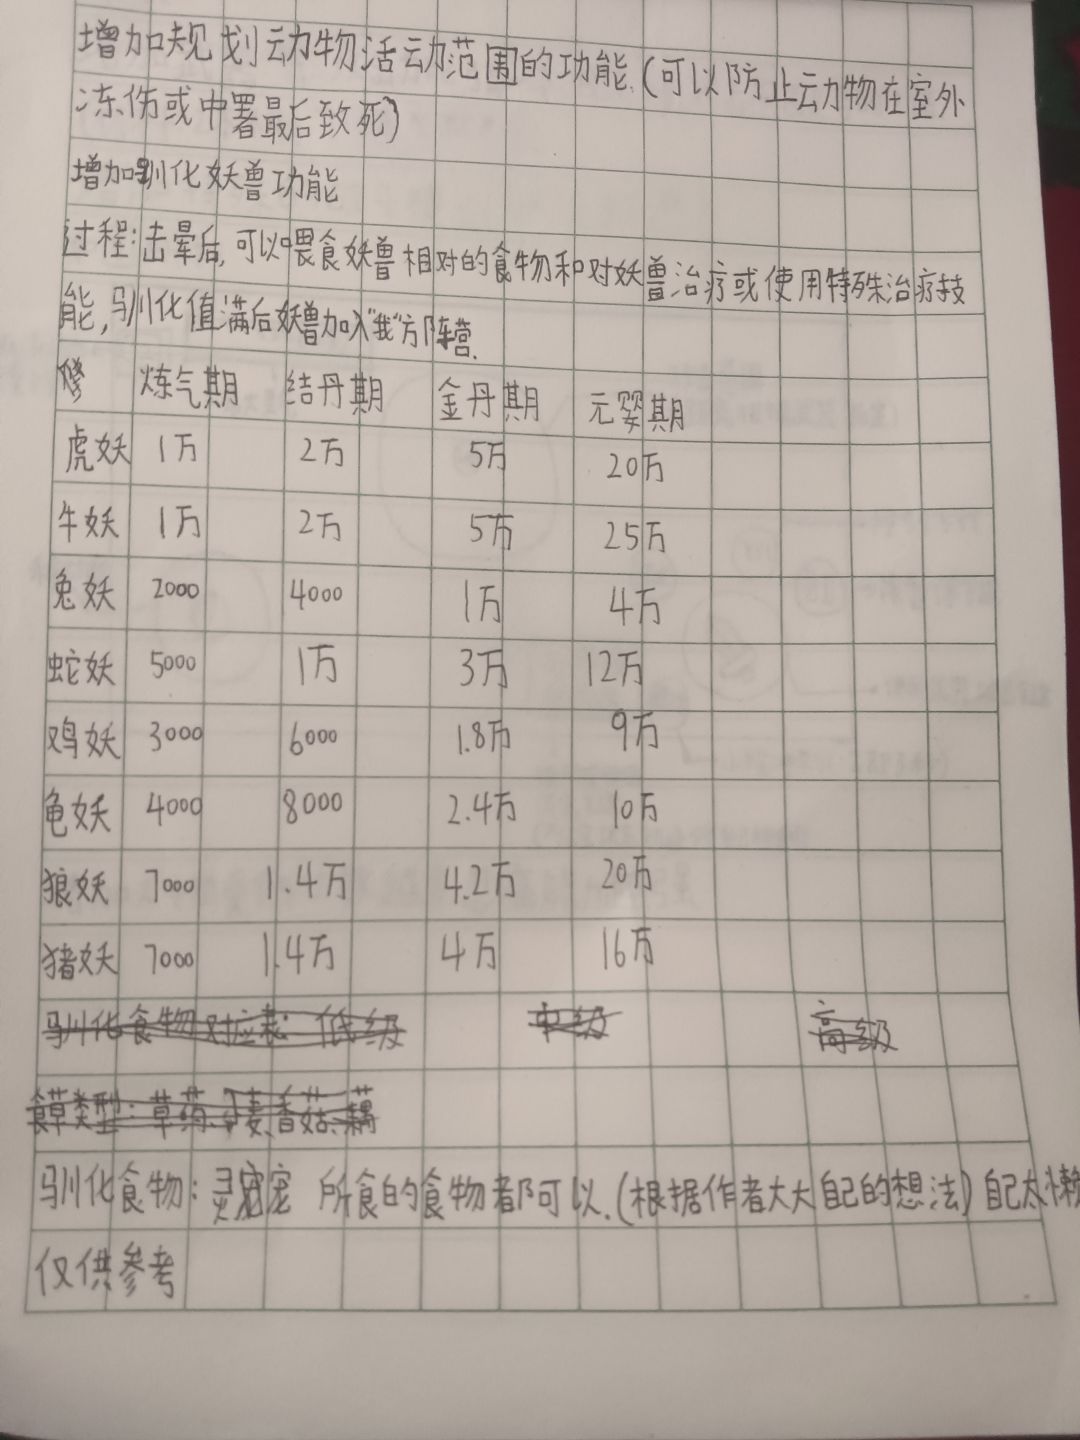 增加规划动物活动范围的功能.(可以防止动物在室外
冻伤或中署最后致死)
增加驯化妖兽功能
过程:击晕后,可以喂食妖兽相对的食物和对妖兽治疗或使用特殊治疗技
能,驯化值满后妖兽加入"我"方阵营.
修 炼气期 结丹期 金丹期 元婴期
虎妖 1万 2万 5万 20万
牛妖 1万 2万 5万 25万
兔妖 2000 4000 1万 4万
蛇妖 5000 1万 3万 12万
鸡妖 3000 6000 1.8万 9万
龟妖 4000 8000 2.4万 10万
狼妖 7000 1.4万 4.2万 20万
猪妖 7000 1.4万 4万 16万
驯化食物对应表: 低级 中级 高级
食草类型:草药、小麦、香菇、藕
驯化食物:灵宠 所食的食物都可以.(根据作者大大自己的想法)自己太懒
仅供参考